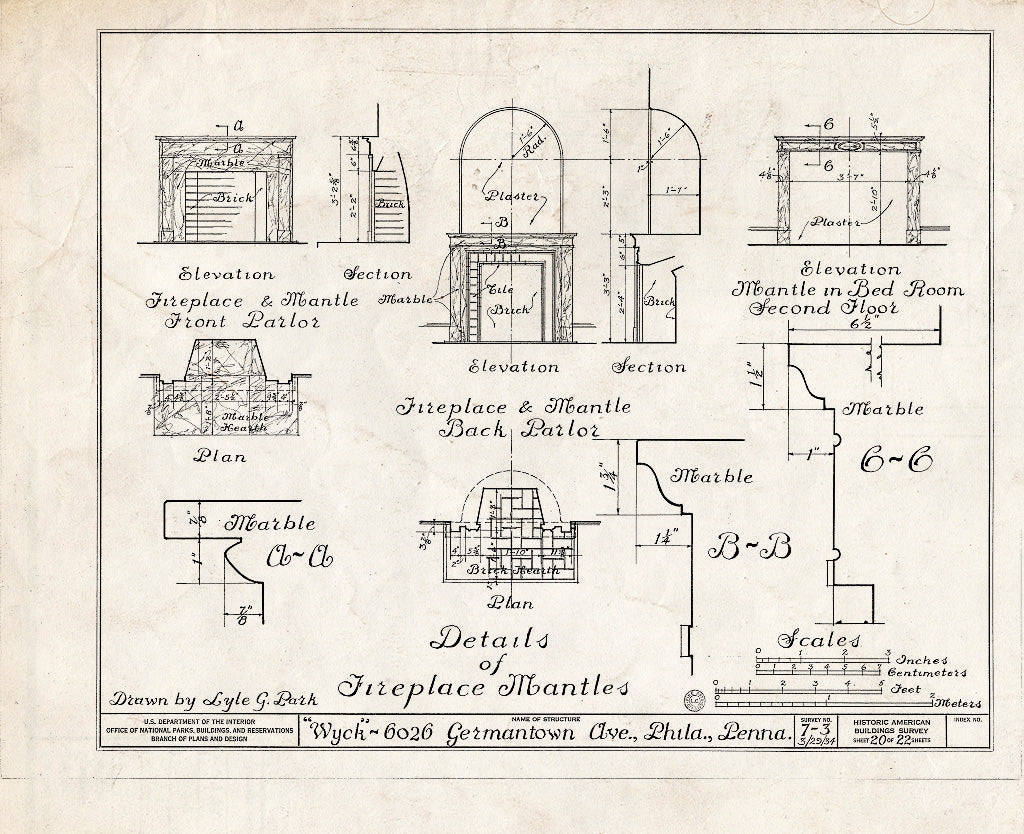 a
a
Marble
Brick
Elevation
Fireplace & Mantle
Front Parlor
3'-2⅞"
6"
2'-2"
Brick
Section
1'-6" Rad.
Plaster
B
B
Marble
Tile
Brick
Elevation
Fireplace & Mantle
Back Parlor
1'-6"
2'-3"
1'-7"
5"
6"
3'-3"
2'-4"
Brick
Section
C
C
5½"
4⅛"
3'-7"
4⅛"
2'-10"
Plaster
Elevation
Mantle in Bed Room
Second Floor
Marble
Hearth
Plan
⅞"
Marble
1"
A~A
⅞"
Brick Hearth
1'-10"
Plan
1¾"
Marble
1¼"
B~B
6½"
1½"
Marble
1"
C~C
Details
of
Fireplace Mantles
Drawn by Lyle G. Park
Scales
0 1 2 3 Inches
0 1 2 3 4 5 6 7 Centimeters
0 1 2 3 4 5 Feet
0 1 2 Meters
U.S. DEPARTMENT OF THE INTERIOR
OFFICE OF NATIONAL PARKS, BUILDINGS, AND RESERVATIONS
BRANCH OF PLANS AND DESIGN
NAME OF STRUCTURE
"Wyck"~6026 Germantown Ave., Phila., Penna.
SURVEY NO.
7-3
3/29/34
HISTORIC AMERICAN
BUILDINGS SURVEY
SHEET 20 OF 22 SHEETS
INDEX NO.